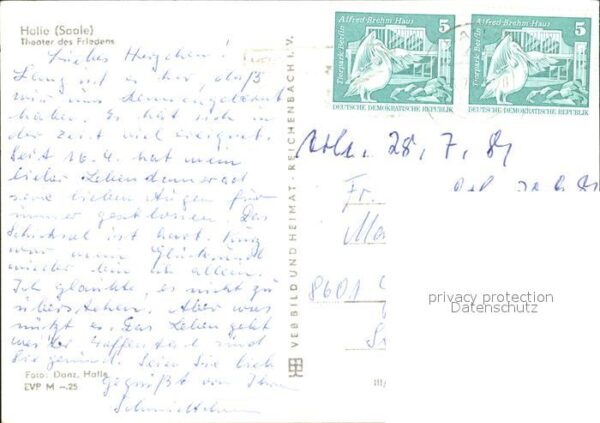 Halle (Saale)
Theater des Friedens
Liebes Herzchen!
Lang ist es her, daß
wir uns kennengelernt
haben. Es hat sich in
der Zeit viel ereignet.
Seit 16.4. hat mein
lieber Lebenskamerad
seine lieben Augen für
immer geschlossen. Das
Schicksal ist hart. Kurz
war mein Glück und
wieder bin ich allein.
Ich glaubte, es nicht zu
überstehen. Aber was
nützt es. Das Leben geht
weiter. Hoffentlich sind
Sie gesund. Seien Sie lieb
gegrüßt von Ihrem
Foto: Danz, Halle
EVP M –.25
VEB BILD UND HEIMAT · REICHENBACH I. V.
Alfred-Brehm-Haus 5
Tierpark Berlin
DEUTSCHE DEMOKRATISCHE REPUBLIK
Alfred-Brehm-Haus 5
Tierpark Berlin
DEUTSCHE DEMOKRATISCHE REPUBLIK
28.7.81
Fr.
8601
privacy protection
Datenschutz
III/